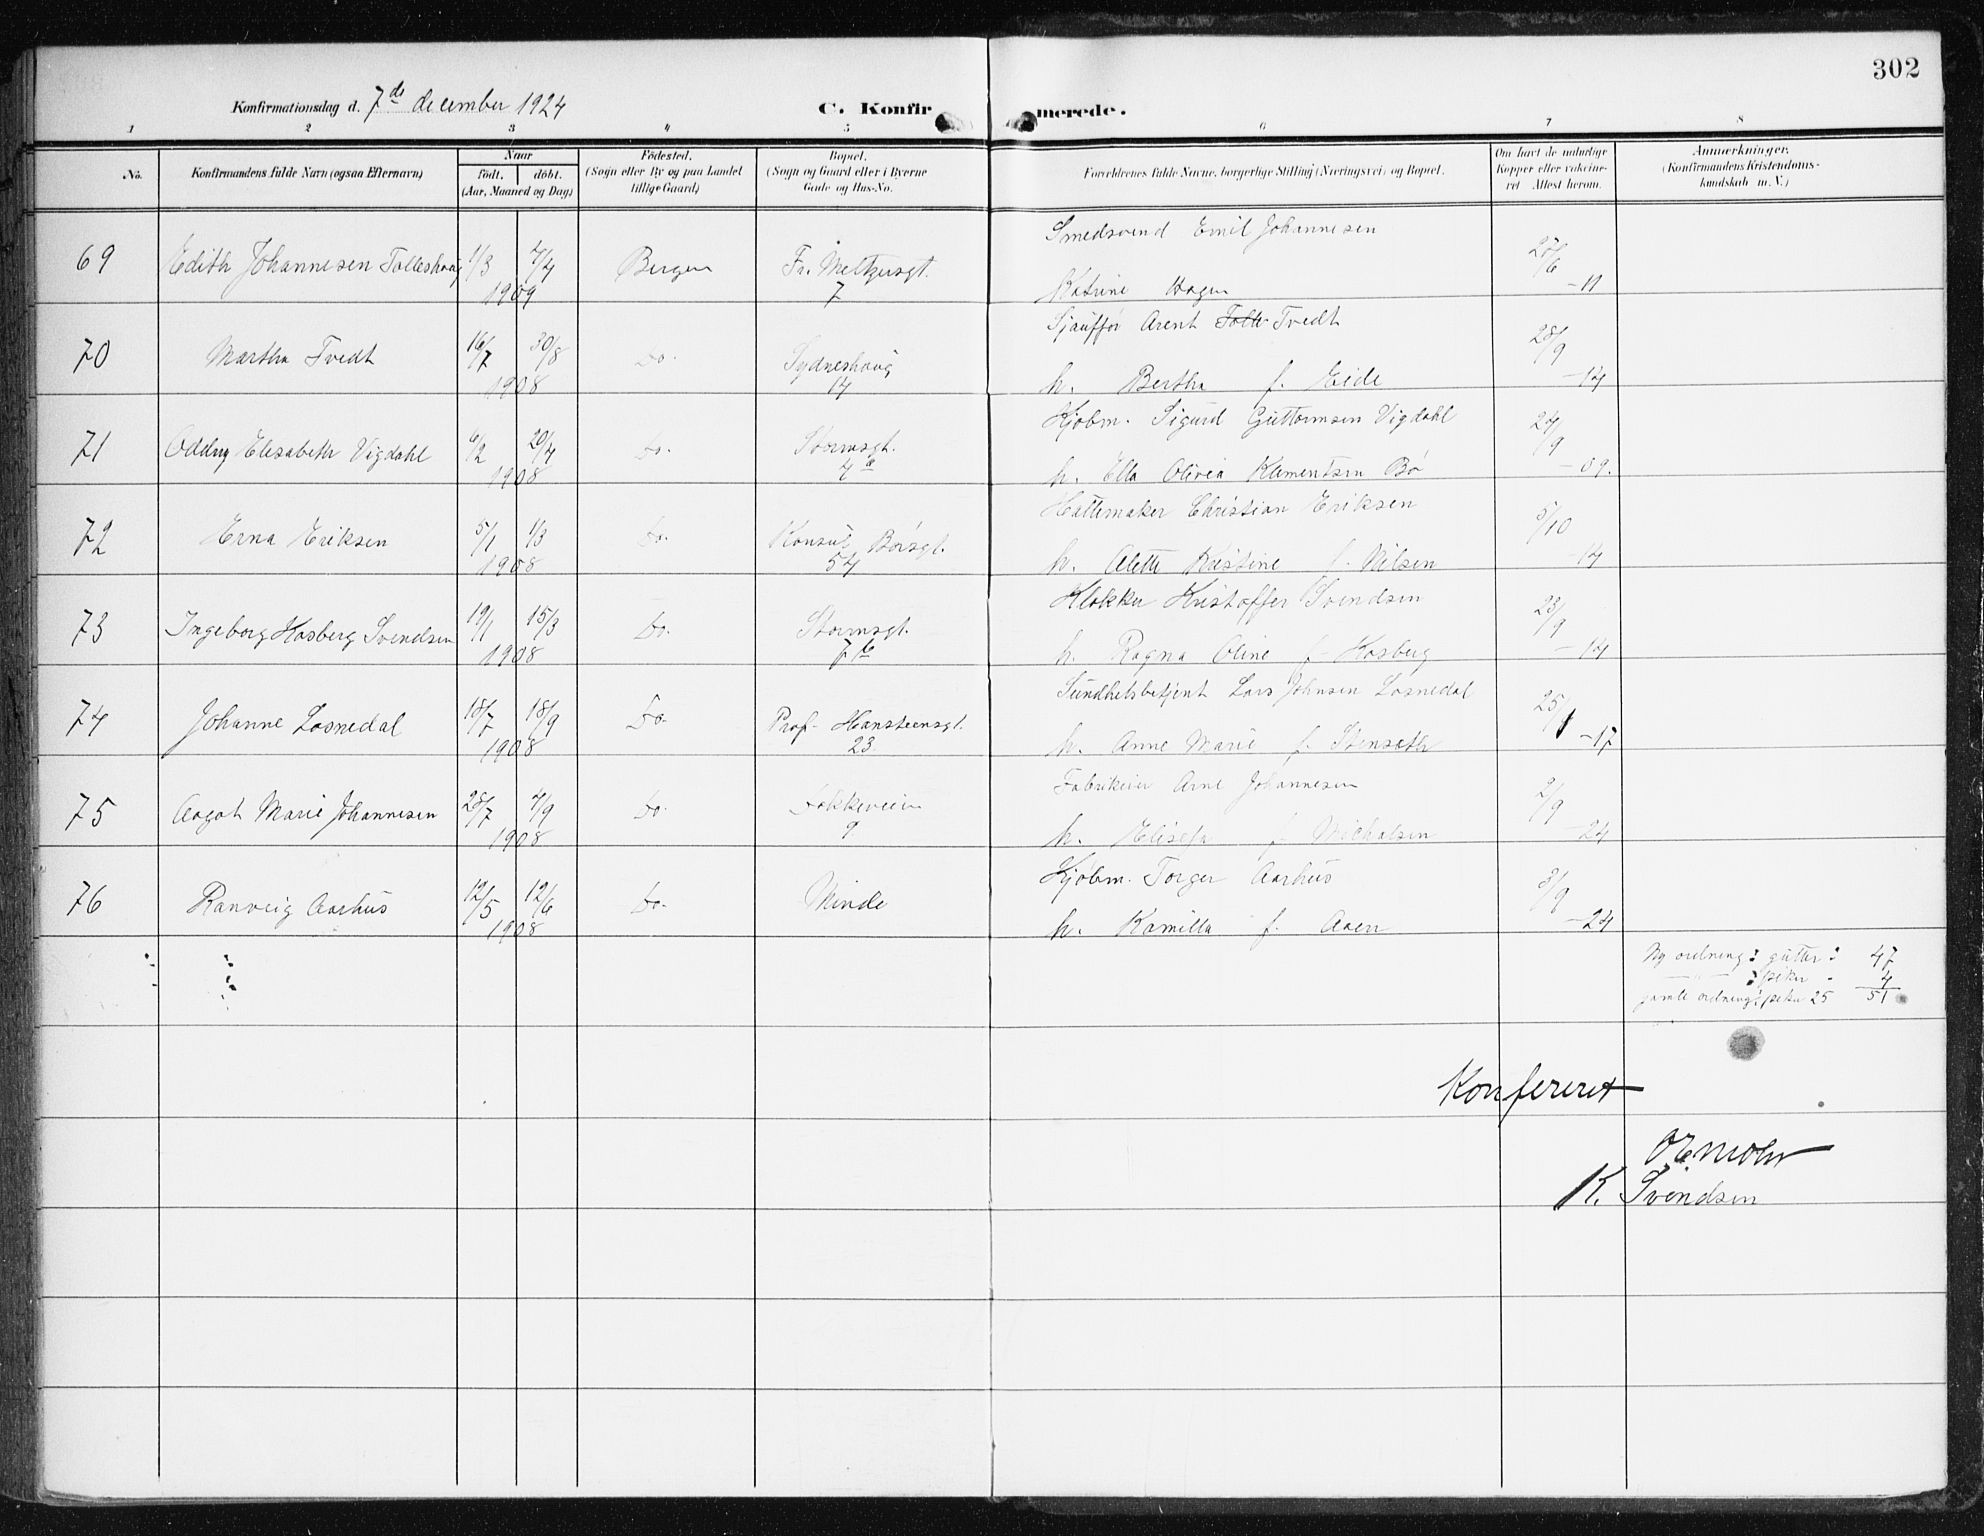 302
Konfirmationsdag d. 7de december 1924
C. Konfirmerede.
1 2 3 4 5 6 7 8
No.
Konfirmandens fulde Navn (ogsaa Efternavn)
Naar
født. døbt.
(Aar, Maaned og Dag)
Fødested.
(Sogn eller By og paa Landet
tillige Gaard)
Bopæl.
(Sogn og Gaard eller i Byerne
Gade og Hus-No.
Forældrenes fulde Navne, borgerlige Stilling (Næringsvei) og Bopæl.
Om havt de naturlige
Kopper eller vakcine-
ret Attest herom.
Anmerkninger.
(Konfirmandens Kristendoms-
kundskab m. V.)
Smedsvend Emil Johannesen
69 Edith Johannesen Tolleshaug 1/3 4/4 Bergen Fr. Meltzersgt. 27/6
1909 7 Katrine Hagen -11
Sjauffør Arent Tvedt
70 Martha Tvedt 16/7 30/8 Do. Sydneshaug 28/9
1908 14 h. Bertha f. Eide -14
Kjøbm. Sigurd Guttormsen Vigdahl
71 Oddny Elisabeth Vigdahl 6/2 20/4 Do. Stormsgt. 24/9
1908 4a h. Ella Olivia Klementsen Bø -09.
Hattemaker Christian Eriksen
72 Erna Eriksen 5/1 1/3 Do. Konsul Børsgt. 5/10
1908 54 h. Alette Kristine f. Nilsen -14
Klokker Kristoffer Svendsen
73 Ingeborg Hosberg Svendsen 19/1 15/3 Do. Stormsgt. 23/9
1908 7b h. Ragna Oline f. Hosberg -14
Sundhetsbetjent Lars Johnsen Losnedal
74 Johanne Losnedal 18/7 18/9 Do. Prof. Hansteensgt. 25/1
1908 23 h. Anne Marie f. Stenseth -17
Fabrikeier Arne Johannesen
75 Aagot Marie Johannesen 28/7 4/9 Do. Dokkeveien 2/9
1908 9 h. Elisefa f. Michalsen -24
Kjøbm. Torger Aarhus
76 Ranveig Aarhus 12/5 12/6 Do. Minde 3/9
1908 h. Kamilla f. Aaen -24
Ny ordning: gutter: 47
—"— : piker - 4
gamle ordning: piker 25 51
Konfereret
K. Svendsen